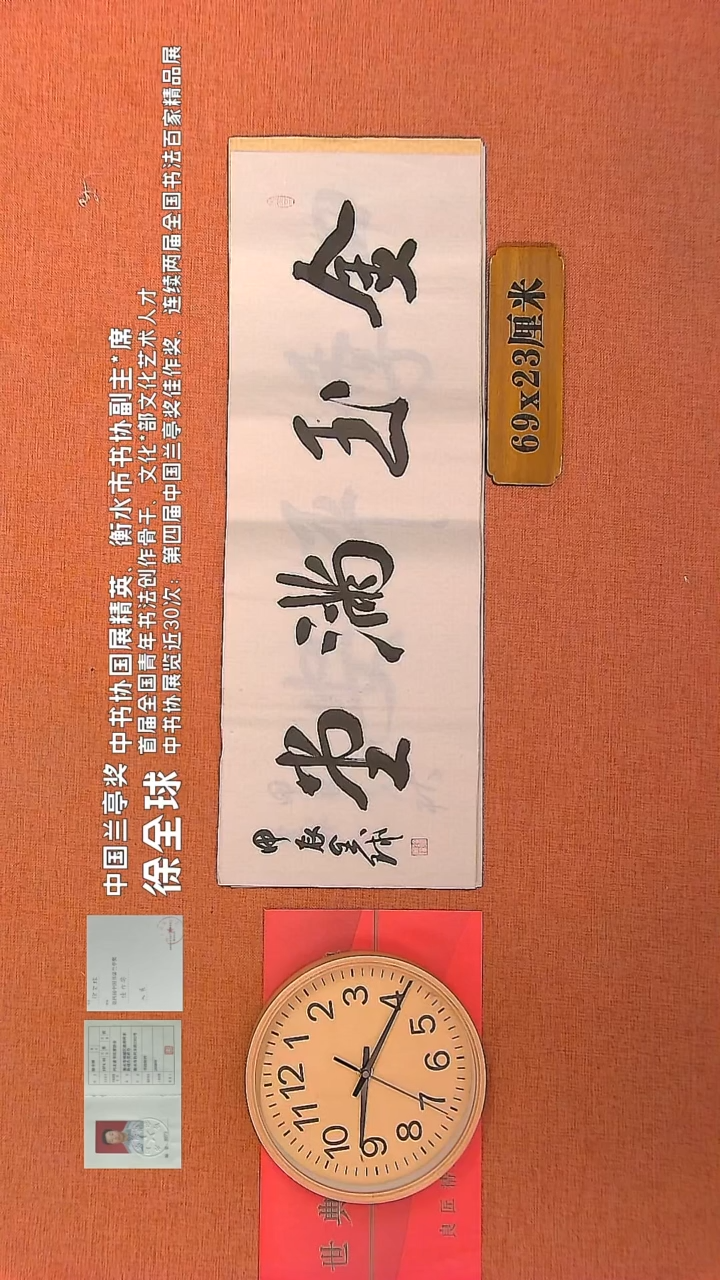 中国兰亭奖 中书协国展精英、衡水市书协副主*席
徐全球
首届全国青年书法创作骨干、文化*部文化艺术人才
中书协展览近30次；第四届中国兰亭奖佳作奖、连续两届全国书法百家精品展
金玉满堂
甲辰全球
69x23厘米
12
1
2
3
4
5
6
7
8
9
10
11
世典
良匠